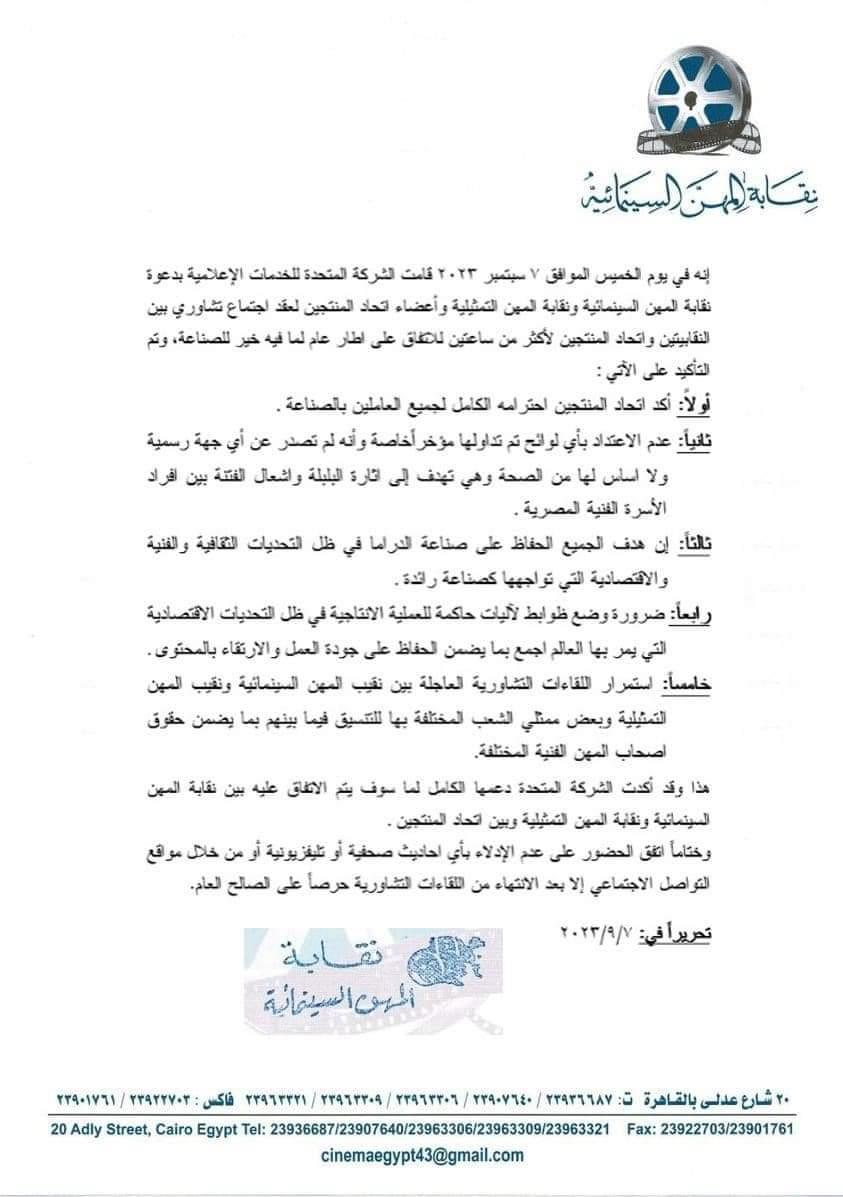 نقابة المهن السينمائية
إنه في يوم الخميس الموافق ٧ سبتمبر ٢٠٢٣ قامت الشركة المتحدة للخدمات الإعلامية بدعوة
نقابة المهن السينمائية ونقابة المهن التمثيلية وأعضاء اتحاد المنتجين لعقد اجتماع تشاوري بين
النقابيتين واتحاد المنتجين لأكثر من ساعتين للاتفاق على اطار عام لما فيه خير للصناعة، وتم
التأكيد على الآتي :
أولاً: أكد اتحاد المنتجين احترامه الكامل لجميع العاملين بالصناعة .
ثانياً: عدم الاعتداد بأي لوائح تم تداولها مؤخرأخاصة وأنه لم تصدر عن أي جهة رسمية
ولا اساس لها من الصحة وهي تهدف إلى اثارة البلبلة واشعال الفتنة بين افراد
الأسرة الفنية المصرية .
ثالثاً: إن هدف الجميع الحفاظ على صناعة الدراما في ظل التحديات الثقافية والفنية
والاقتصادية التي تواجهها كصناعة رائدة .
رابعاً: ضرورة وضع ظوابط لآليات حاكمة للعملية الانتاجية في ظل التحديات الاقتصادية
التي يمر بها العالم اجمع بما يضمن الحفاظ على جودة العمل والارتقاء بالمحتوى .
خامساً: استمرار اللقاءات التشاورية العاجلة بين نقيب المهن السينمائية ونقيب المهن
التمثيلية وبعض ممثلي الشعب المختلفة بها للتنسيق فيما بينهم بما يضمن حقوق
اصحاب المهن الفنية المختلفة.
هذا وقد أكدت الشركة المتحدة دعمها الكامل لما سوف يتم الاتفاق عليه بين نقابة المهن
السينمائية ونقابة المهن التمثيلية وبين اتحاد المنتجين .
وختاماً اتفق الحضور على عدم الإدلاء بأي احاديث صحفية أو تليفزيونية أو من خلال مواقع
التواصل الاجتماعي إلا بعد الانتهاء من اللقاءات التشاورية حرصاً على الصالح العام.
تحريراً في: ٢٠٢٣/٩/٧
نقابة
المهن السينمائية
٢٠ شارع عدلى بالقاهرة ت: ٢٣٩٣٦٦٨٧ / ٢٣٩٠٧٦٤٠ / ٢٣٩٦٣٣٠٦ / ٢٣٩٦٣٣٠٩ / ٢٣٩٦٣٣٢١ فاكس : ٢٣٩٢٢٧٠٣ / ٢٣٩٠١٧٦١
20 Adly Street, Cairo Egypt Tel: 23936687/23907640/23963306/23963309/23963321 Fax: 23922703/23901761
cinemaegypt43@gmail.com